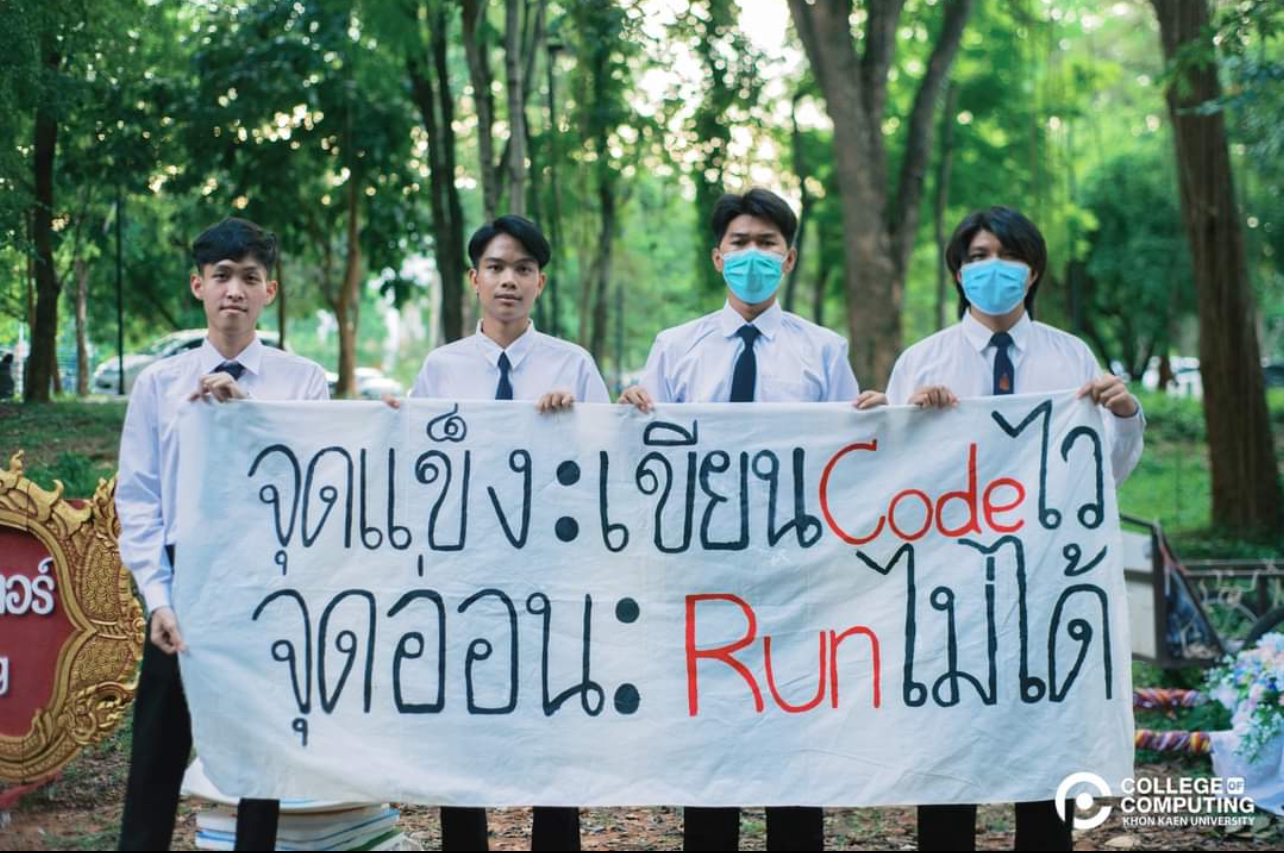 จุดแข็ง : เขียนCodeไว
จุดอ่อน : Runไม่ได้
COLLEGE OF
COMPUTING
KHON KAEN UNIVERSITY